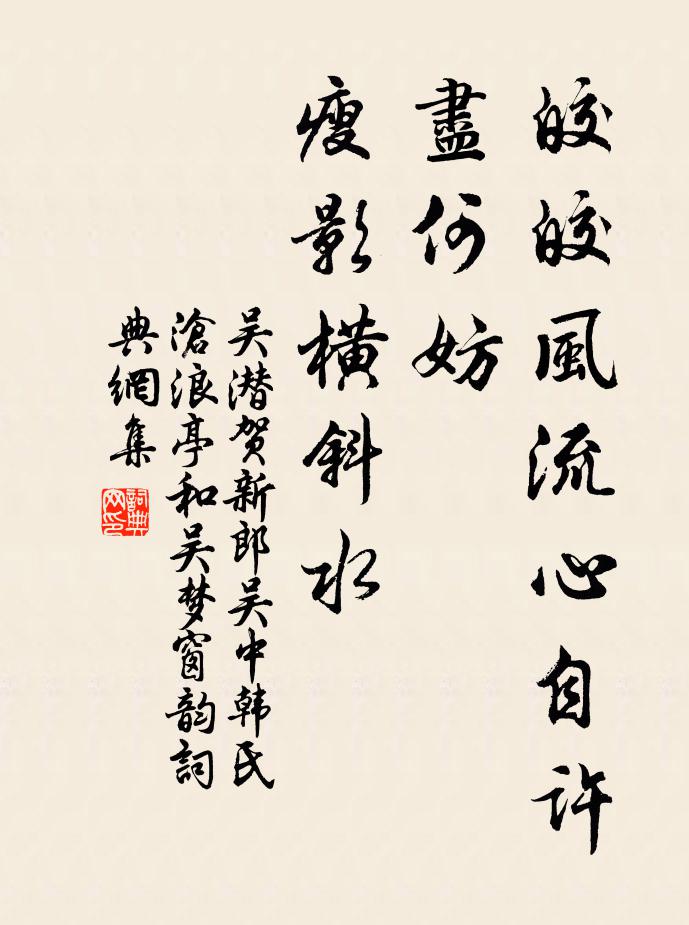 皎皎風流心自許
盡何妨
瘦影橫斜水
吴潜贺新郎吴中韩氏
滄浪亭和吴梦窗韵詞
典網集
詞典
网印